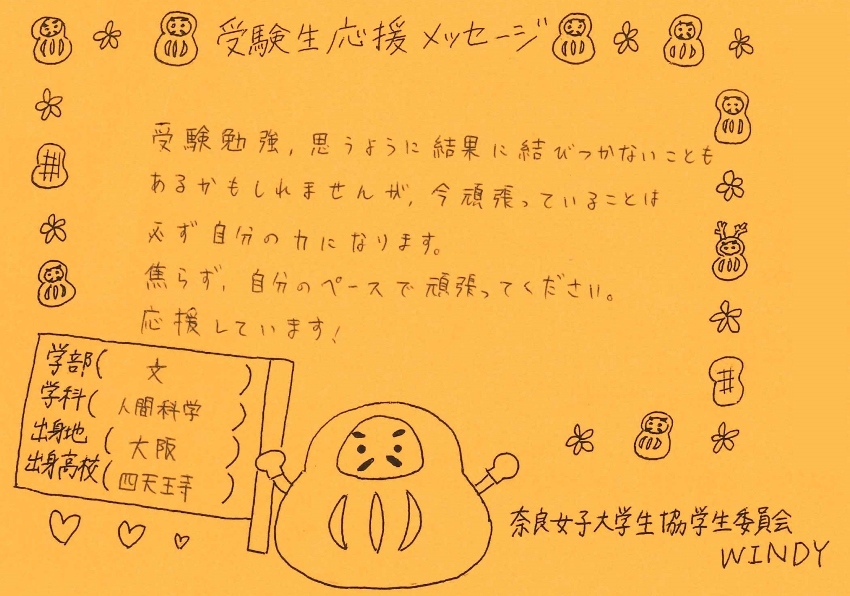 受験生応援メッセージ
受験勉強,思うように結果に結びつかないことも
あるかもしれませんが,今頑張っていることは
必ず自分の力になります。
焦らず,自分のペースで頑張ってください。
応援しています!
学部( 文 )
学科( 人間科学 )
出身地( 大阪 )
出身高校( 四天王寺 )
奈良女子大学生協学生委員会
WINDY